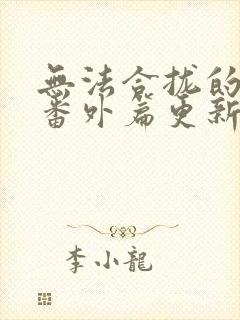 無法合拢的
番外篇更新
李小龍